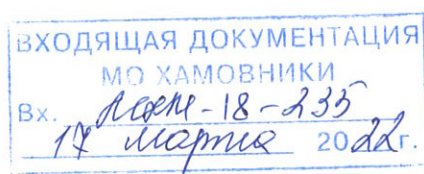 ВХОДЯЩАЯ ДОКУМЕНТАЦИЯ
МО ХАМОВНИКИ
Вх. -18-235
17 марта 2022г.